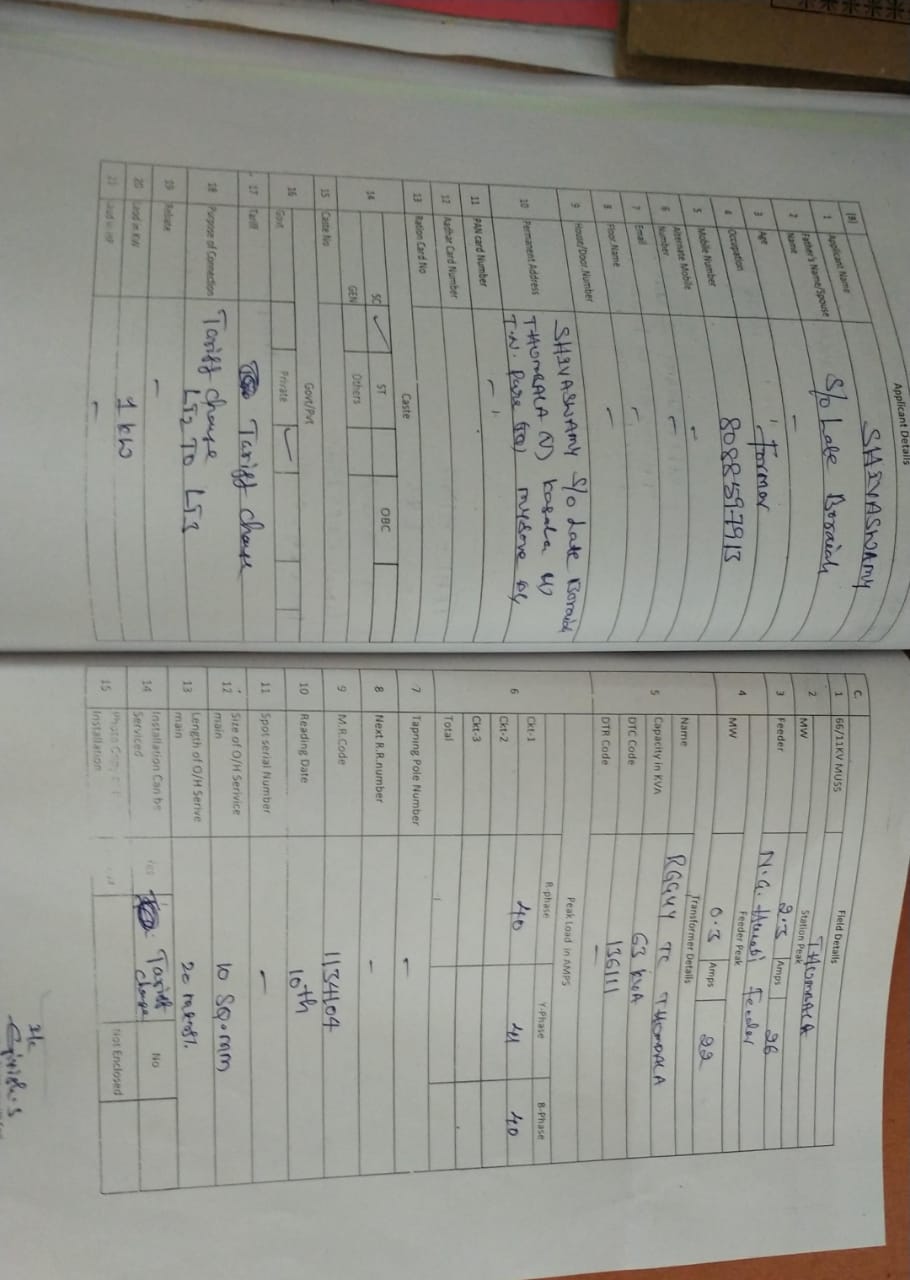 Applicant Details
(B)
1 Applicant Name SHIVASWAMY
2 Father's Name/Spouse Name S/o Late Boraiah
3 Age -
4 Occupation Former
5 Mobile Number 8088597913
6 Alternate Mobile Number -
7 Email -
8 Floor Name -
9 House/Door Number -
10 Permanent Address SHIVASWAMY S/o Late Boraiah
THUMBALA (V) Kasaba (H)
T.N. Pura (TQ) mysore
11 PAN card Number -
12 Aadhar Card Number
13 Ration Card No
14 Caste
SC ✓ ST OBC
GEN Others
15 Caste No
16 Govt/Pvt
Govt Private ✓
17 Tariff Tariff change
18 Purpose of Connection Tariff change
LT2 TO LT3
19 Rebate -
20 Load in KW 1 kw
21 Load in HP -
C. Field Details
1 66/11KV MUSS THUMBALA
2 Station Peak
MW 2.3 Amps 26
3 Feeder N.G. Hundi Feeder
4 Feeder Peak
MW 0.3 Amps 22
5 Transformer Details
Name RGGUY TC THUMBALA
Capacity in KVA 63 kvA
DTC Code 136111
DTR Code -
6 Peak Load in AMPS
R-phase Y-Phase B-Phase
Ckt-1 40 41 40
Ckt-2
Ckt-3
Total
7 Tapping Pole Number -
8 Next R.R.number -
9 M.R.Code 1134104
10 Reading Date 10th
11 Spot serial Number -
12 Size of O/H Serivice main 10 SQ.mm
13 Length of O/H Serive main 20
14 Installation Can be Serviced Yes Tariff change No
15 Installation Not Enclosed
Girish.S